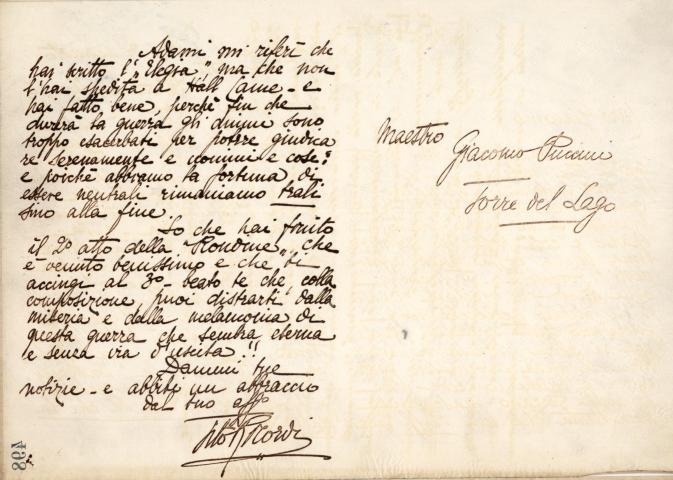 Adami mi riferì che
hai scritto l'"Elegia", ma che non
l'hai spedita a Hall Caine - e
hai fatto bene, perchè fin che
durerà la guerra gli animi sono
troppo esacerbati per potere giudica
re serenamente e uomini e cose:
e poichè abbiamo la fortuna di
essere neutrali rimaniamo tali
sino alla fine.
So che hai finito
il 2º atto della "Rondine", che
è venuto benissimo e che ti
accingi al 3º - beato te che, colla
composizione, puoi distrarti dalla
miseria e dalla melanconia di
questa guerra che sembra eterna
e senza via d'uscita!!
Dammi tue
notizie - e abbiti un abbraccio
dal tuo affº
Tito Ricordi
498
Maestro
Giacomo Puccini
Torre del Lago